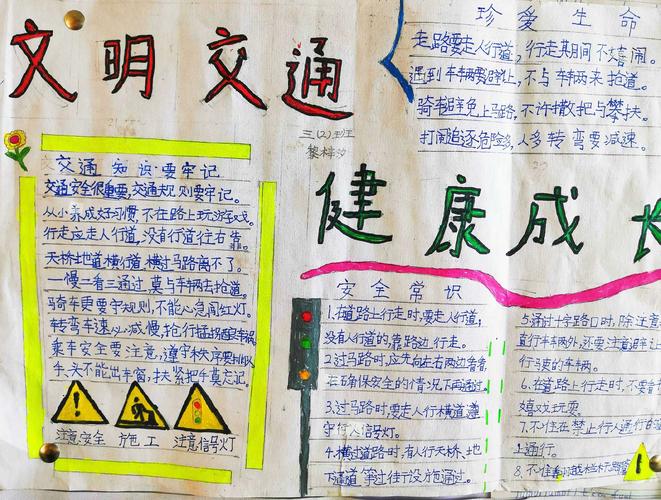 文明交通
三(2)班
珍爱生命
走路要走人行道，行走其间不嬉闹。
遇到车辆要避让，不与车辆来抢道。
骑车避免上马路，不许撒把与攀扶。
打闹追逐危险多，人多转弯要减速。
交通知识要牢记
交通安全很重要，交通规则要牢记。
从小养成好习惯，不在路上玩游戏。
行走应走人行道，没有行道往右靠。
天桥地道横行道，横过马路离不了。
一慢二看三通过，莫与车辆去抢道。
骑车更要守规则，不能心急闯红灯。
转弯车速必减慢，抢行猛拐
乘车安全要注意，遵守秩序要
手、头不能出车窗，扶紧把手莫忘记。
注意安全 施工 注意信号灯
健康成长
安全常识
1.在道路上行走时，要走人行道，
没有人行道的，靠路边行走。
2.过马路时，应先向左右两边看看，
在确保安全的情况下再通过。
3.过马路时，要走人行横道，遵
守信号灯。
4.横过道路时，有人行天桥、地
下通道等过街设施通过。
5.通过十字路口时，除注意
直行车辆外，还要注意避让
行驶的车辆。
6.在道路上行走时，不要
嬉戏玩耍。
7.不住在禁止行人通行的道
上通行。
8.不住